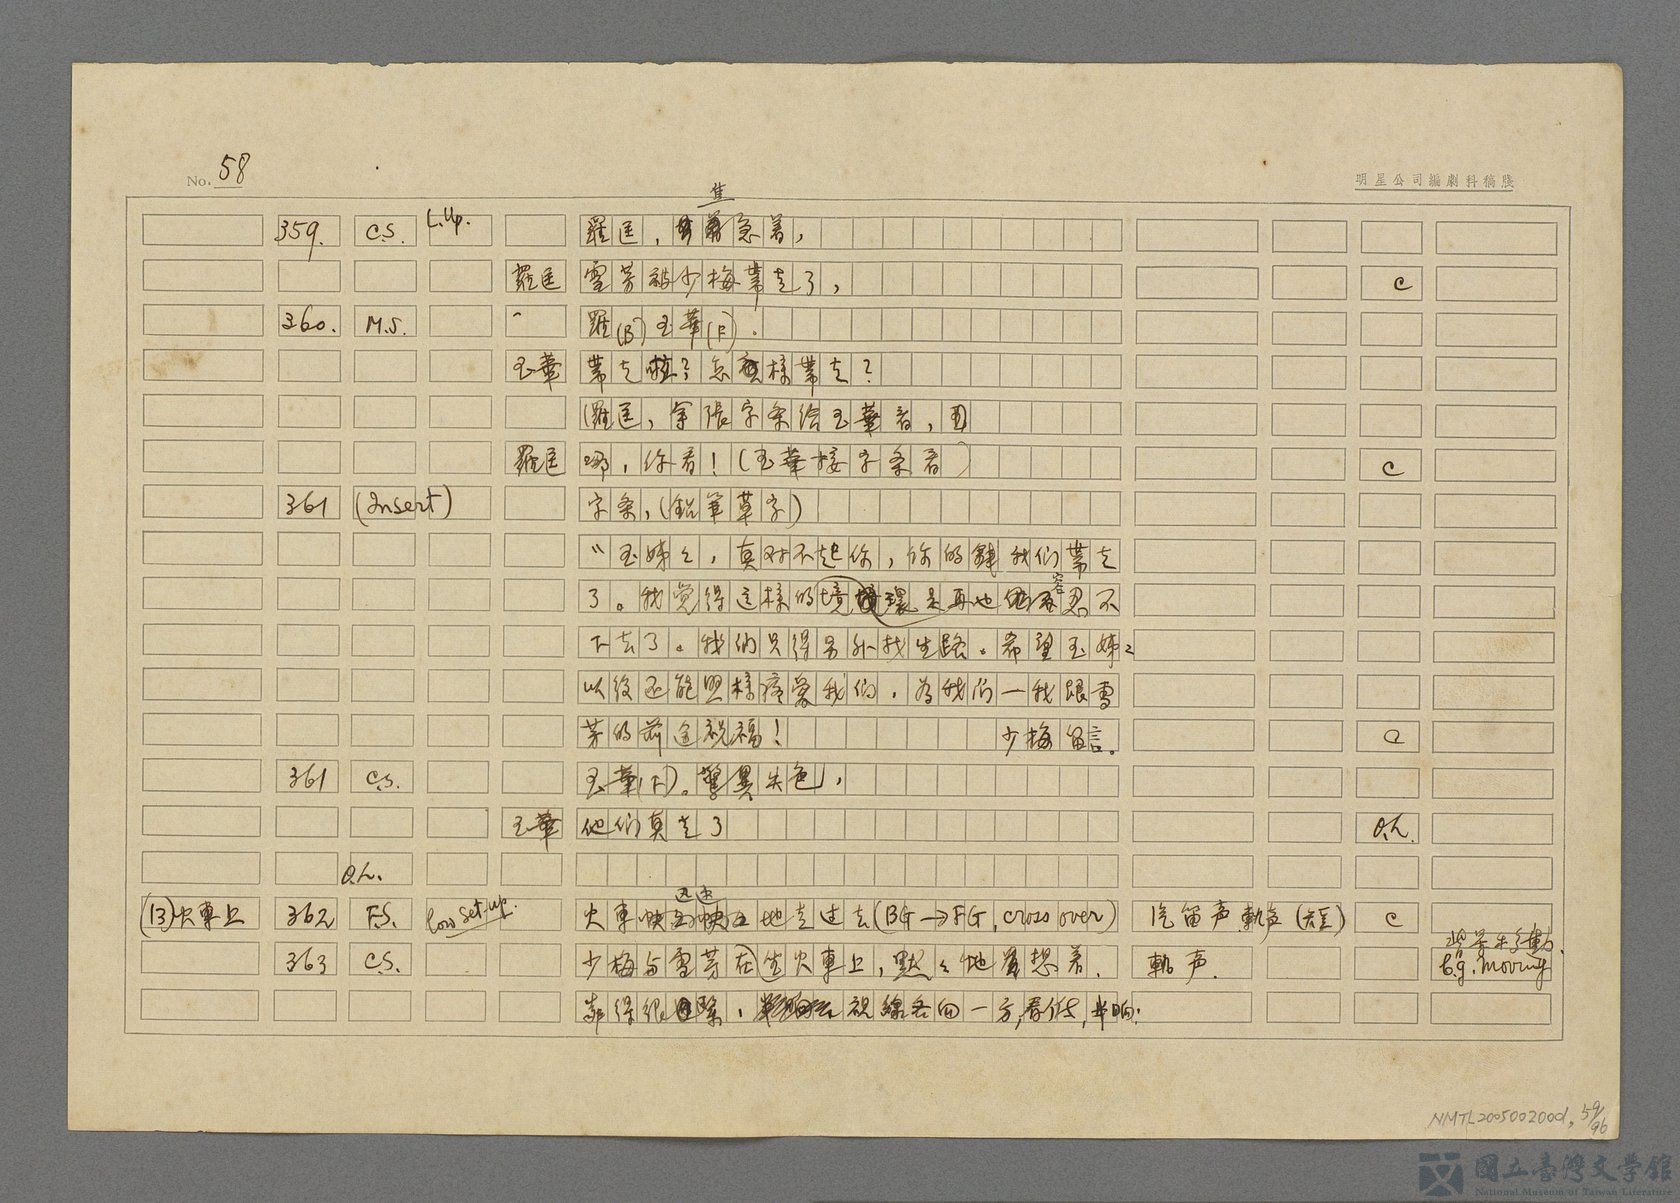 No. 58
明星公司編劇科稿牋
焦
359. C.S. L.Up. 羅匡，急着，
羅匡 雪芳被少梅帶走了， C
360. M.S. 羅(B)玉華(F)．
玉華 帶走啦？怎樣帶走？
(羅匡，拿張字条给玉華看，
羅匡 哪，你看！(玉華接字条看) C
361 (Insert) 字条，(鉛筆草字)
玉姊々，真对不起你，你的我们帶走
容
了。我觉得这样的境環是再也忍不
下去了。我们只得另外找生路。希望玉姊々
以後还能照样疼爱我们，为我们一我跟雪
芳的前途祝福！ 少梅留言。 C
361 C.S. 玉華(F)。驚異失色，
玉華 他们真走了 O.L.
O.L.
迅速
(13)火車上 362 F.S. low set-up. 火車地走过去(BG→FG, cross over) 汽笛声軌声 C
背景移動.
363 C.S. 少梅与雪芳在坐火車上，默々地想着． 軌声． b.g. moving
靠得很緊，視線各向一方，看伏，半晌．
NMTL20050020001, 59/96
國立臺灣文學館
National Museum of Taiwan Literature